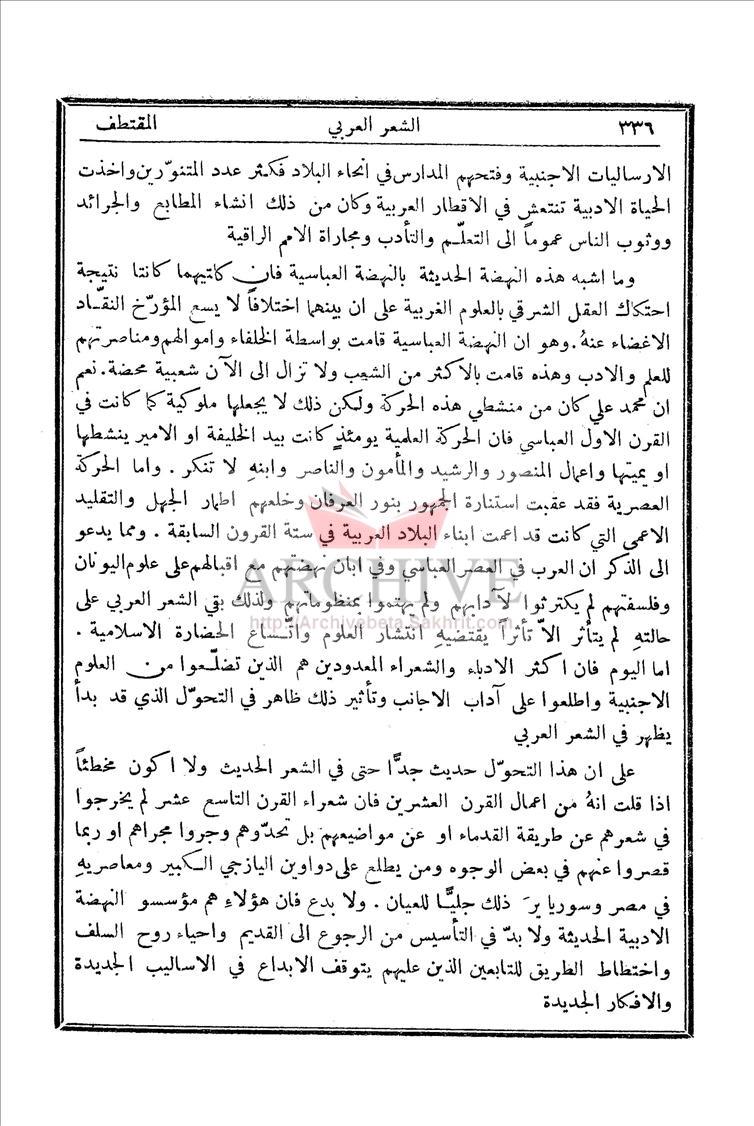 ٣٣٦ الشعر العربي المقتطف
الارساليات الاجنبية وفتحهم المدارس في انحاء البلاد فكثر عدد المتنوّرين واخذت
الحياة الادبية تنتعش في الاقطار العربية وكان من ذلك انشاء المطابع والجرائد
ووثوب الناس عموماً الى التعلّم والتأدب ومجاراة الامم الراقية
وما اشبه هذه النهضة الحديثة بالنهضة العباسية فان كلتيهما كانتا نتيجة
احتكاك العقل الشرقي بالعلوم الغربية على ان بينهما اختلافاً لا يسع المؤرّخ النقّاد
الاغضاء عنهُ. وهو ان النهضة العباسية قامت بواسطة الخلفاء واموالهم ومناصرتهم
للعلم والادب وهذه قامت بالاكثر من الشعب ولا تزال الى الآن شعبية محضة. نعم
ان محمد علي كان من منشطي هذه الحركة ولكن ذلك لا يجعلها ملوكية كما كانت في
القرن الاول العباسي فان الحركة العلمية يومئذٍ كانت بيد الخليفة او الامير ينشطها
او يميتها واعمال المنصور والرشيد والمأمون والناصر وابنهِ لا تنكر . واما الحركة
العصرية فقد عقبت استنارة الجمهور بنور العرفان وخلعهم اطمار الجهل والتقليد
الاعمى التي كانت قد اعمت ابناء البلاد العربية في ستة القرون السابقة . ومما يدعو
الى الذكر ان العرب في العصر العباسي وفي ابان نهضتهم مع اقبالهم على علوم اليونان
ARCHIVE
وفلسفتهم لم يكترثوا لآدابهم ولم يهتموا بمنظوماتهم ولذلك بقي الشعر العربي على
http://Archivebeta.Sakhrit.com
حالتهِ لم يتأثر الاّ تأثراً يقتضيهِ انتشار العلوم واتّساع الحضارة الاسلامية .
اما اليوم فان اكثر الادباء والشعراء المعدودين هم الذين تضلّعوا من العلوم
الاجنبية واطلعوا على آداب الاجانب وتأثير ذلك ظاهر في التحوّل الذي قد بدأ
يظهر في الشعر العربي
على ان هذا التحوّل حديث جدًّا حتى في الشعر الحديث ولا اكون مخطئاً
اذا قلت انهُ من اعمال القرن العشرين فان شعراء القرن التاسع عشر لم يخرجوا
في شعرهم عن طريقة القدماء او عن مواضيعهم بل تحدّوهم وجروا مجراهم او ربما
قصروا عنهم في بعض الوجوه ومن يطلع على دواوين اليازجي الكبير ومعاصريهِ
في مصر وسوريا يرَ ذلك جليًّا للعيان . ولا بدع فان هؤلاءِ هم مؤسسو النهضة
الادبية الحديثة ولا بدّ في التأسيس من الرجوع الى القديم واحياء روح السلف
واختطاط الطريق للتابعين الذين عليهم يتوقف الابداع في الاساليب الجديدة
والافكار الجديدة